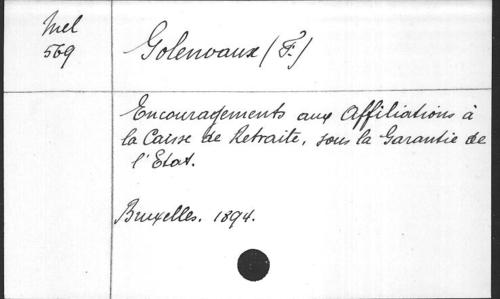 Mel
569
Golenvaux (F.)
Encouragements aux Affiliations à
la Caisse de Retraite, sous la Garantie de
l'Etat.
Bruxelles. 1894.